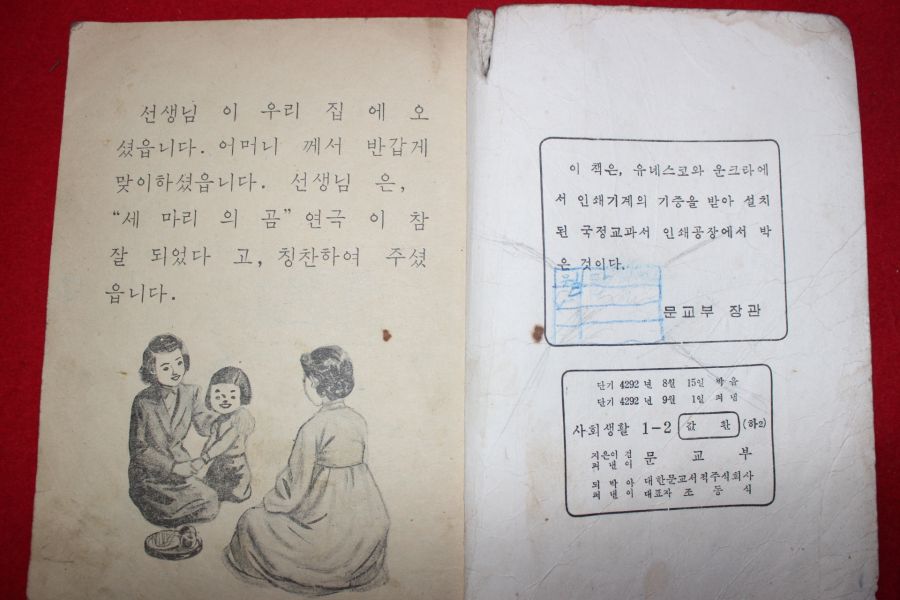 선생님 이 우리 집 에 오
셨읍니다. 어머니 께서 반갑게
맞이하셨읍니다. 선생님 은,
“세 마리 의 곰” 연극 이 참
잘 되었다 고, 칭찬하여 주셨
읍니다.
이 책은, 유네스코와 운크라에
서 인쇄기계의 기증을 받아 설치
된 국정교과서 인쇄공장에서 박
은 것이다.
문교부 장관
단기 4292 년 8월 15일 박음
단기 4292 년 9월 1일 펴냄
사회생활 1-2 값 환 (하2)
지은이 겸
펴낸이 문교부
되박아
펴낸이 대한문교서적주식회사
대표자 조동식